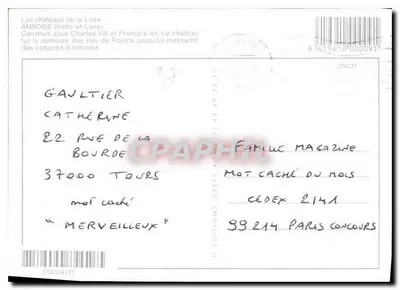 Les châteaux de la Loire
AMBOISE (Indre-et-Loire)
Construit sous Charles VIII et François Ier, ce château
fut la demeure des rois de France jusqu'au massacre
des conjurés d'Amboise
3 419610 000091
GAULTIER
CATHERINE
22 RUE DE LA
BOURDE
37000 TOURS
mot caché
"MERVEILLEUX"
CPAPHIL
FAMILLE MAGAZINE
MOT CACHÉ DU MOIS
CEDEX 2141
99214 PARIS CONCOURS